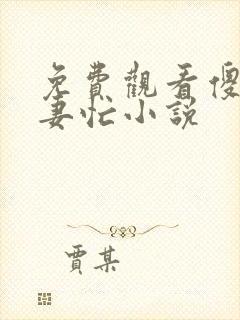 免費觀看傻
妻忙小説
賈某